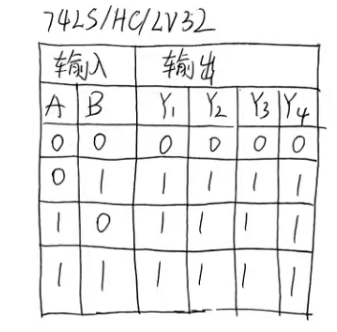 74LS/HC/LV32
输入 输出
A B Y1 Y2 Y3 Y4
0 0 0 0 0 0
0 1 1 1 1 1
1 0 1 1 1 1
1 1 1 1 1 1